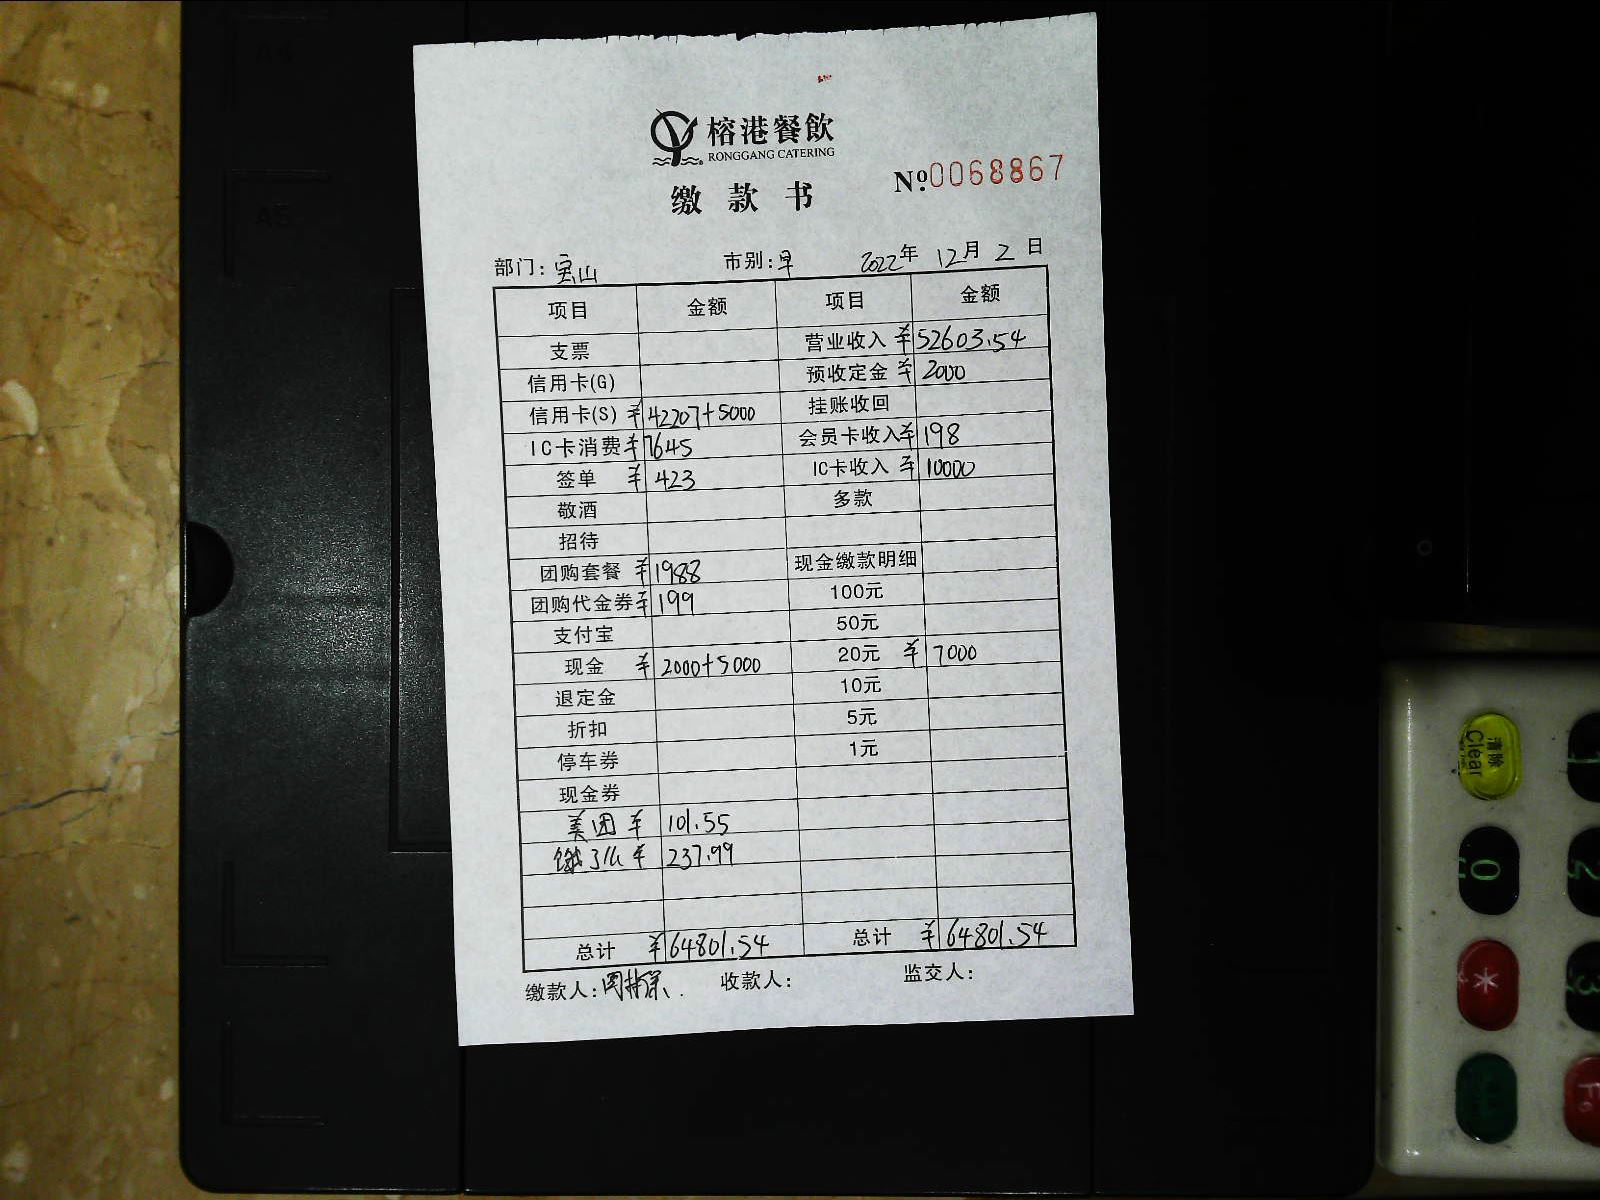 榕港餐飲
RONGGANG CATERING
缴款书 №0068867
部门: 宝山 市别: 早 2022年 12月 2日
项目 金额 项目 金额
支票 营业收入 ¥52603.54
信用卡(G) 预收定金 ¥2000
信用卡(S) ¥42207+5000 挂账收回
IC卡消费 ¥7645 会员卡收入 ¥198
签单 ¥423 IC卡收入 ¥10000
敬酒 多款
招待
团购套餐 ¥1988 现金缴款明细
团购代金券 ¥199 100元
支付宝 50元
现金 ¥2000+5000 20元 ¥7000
退定金 10元
折扣 5元
停车券 1元
现金券
美团 ¥101.55
饿了么 ¥237.99
总计 ¥64801.54 总计 ¥64801.54
缴款人: 收款人: 监交人:
A4
A5
清除
Clear
0
1
2
3
*
F